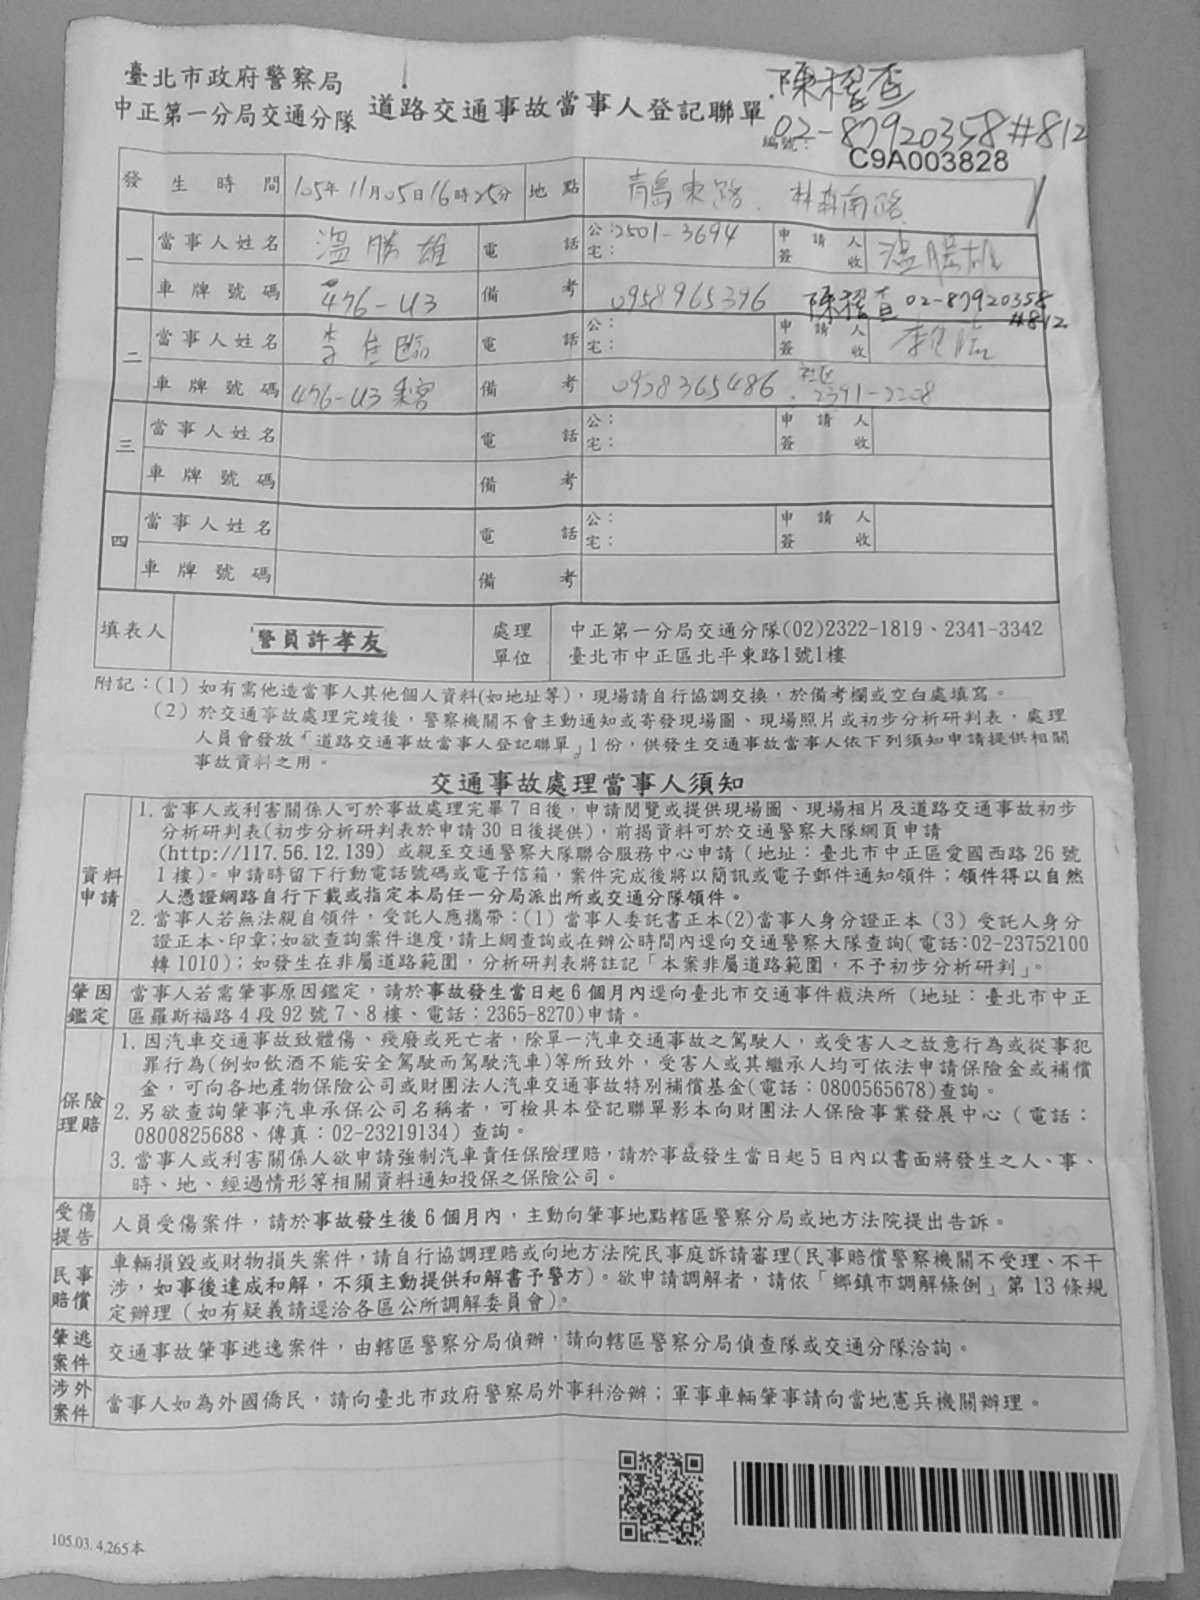 臺北市政府警察局
中正第一分局交通分隊 道路交通事故當事人登記聯單
02-87920358#812
編號：C9A003828
發生時間 105年11月05日16時25分 地點 青島東路．林森南路
一 當事人姓名 溫勝雄 電話 公：2501-3694 宅： 申請人簽收 溫勝雄
車牌號碼 476-U3 備考 0958965396 02-87920358 #812
二 當事人姓名 電話 公： 宅： 申請人簽收
車牌號碼 476-U3乘客 備考 0928365486. 2391-2208
三 當事人姓名 電話 公： 宅： 申請人簽收
車牌號碼 備考
四 當事人姓名 電話 公： 宅： 申請人簽收
車牌號碼 備考
填表人 警員許孝友 處理單位 中正第一分局交通分隊(02)2322-1819、2341-3342
臺北市中正區北平東路1號1樓
附記：(1) 如有需他造當事人其他個人資料(如地址等)，現場請自行協調交換，於備考欄或空白處填寫。
(2) 於交通事故處理完竣後，警察機關不會主動通知或寄發現場圖、現場照片或初步分析研判表，處理
人員會發放「道路交通事故當事人登記聯單」1份，供發生交通事故當事人依下列須知申請提供相關
事故資料之用。
交通事故處理當事人須知
資料申請
1. 當事人或利害關係人可於事故處理完畢7日後，申請閱覽或提供現場圖、現場相片及道路交通事故初步
分析研判表(初步分析研判表於申請30日後提供)，前揭資料可於交通警察大隊網頁申請
(http://117.56.12.139) 或親至交通警察大隊聯合服務中心申請（地址：臺北市中正區愛國西路26號
1樓）。申請時留下行動電話號碼或電子信箱，案件完成後將以簡訊或電子郵件通知領件；領件得以自然
人憑證網路自行下載或指定本局任一分局派出所或交通分隊領件。
2. 當事人若無法親自領件，受託人應攜帶：(1) 當事人委託書正本(2)當事人身分證正本 (3) 受託人身分
證正本、印章；如欲查詢案件進度，請上網查詢或在辦公時間內逕向交通警察大隊查詢(電話：02-23752100
轉1010)；如發生在非屬道路範圍，分析研判表將註記「本案非屬道路範圍，不予初步分析研判」。
肇因鑑定
當事人若需肇事原因鑑定，請於事故發生當日起6個月內逕向臺北市交通事件裁決所（地址：臺北市中正
區羅斯福路4段92號7、8樓、電話：2365-8270)申請。
保險理賠
1. 因汽車交通事故致體傷、殘廢或死亡者，除單一汽車交通事故之駕駛人，或受害人之故意行為或從事犯
罪行為(例如飲酒不能安全駕駛而駕駛汽車)等所致外，受害人或其繼承人均可依法申請保險金或補償
金，可向各地產物保險公司或財團法人汽車交通事故特別補償基金(電話：0800565678)查詢。
2. 另欲查詢肇事汽車承保公司名稱者，可檢具本登記聯單影本向財團法人保險事業發展中心（電話：
0800825688、傳真：02-23219134) 查詢。
3. 當事人或利害關係人欲申請強制汽車責任保險理賠，請於事故發生當日起5日內以書面將發生之人、事、
時、地、經過情形等相關資料通知投保之保險公司。
受傷提告
人員受傷案件，請於事故發生後6個月內，主動向肇事地點轄區警察分局或地方法院提出告訴。
民事賠償
車輛損毀或財物損失案件，請自行協調理賠或向地方法院民事庭訴請審理(民事賠償警察機關不受理、不干
涉，如事後達成和解，不須主動提供和解書予警方)。欲申請調解者，請依「鄉鎮市調解條例」第13條規
定辦理（如有疑義請逕洽各區公所調解委員會）。
肇逃案件
交通事故肇事逃逸案件，由轄區警察分局偵辦，請向轄區警察分局偵查隊或交通分隊洽詢。
涉外案件
當事人如為外國僑民，請向臺北市政府警察局外事科洽辦；軍事車輛肇事請向當地憲兵機關辦理。
105.03. 4,265本